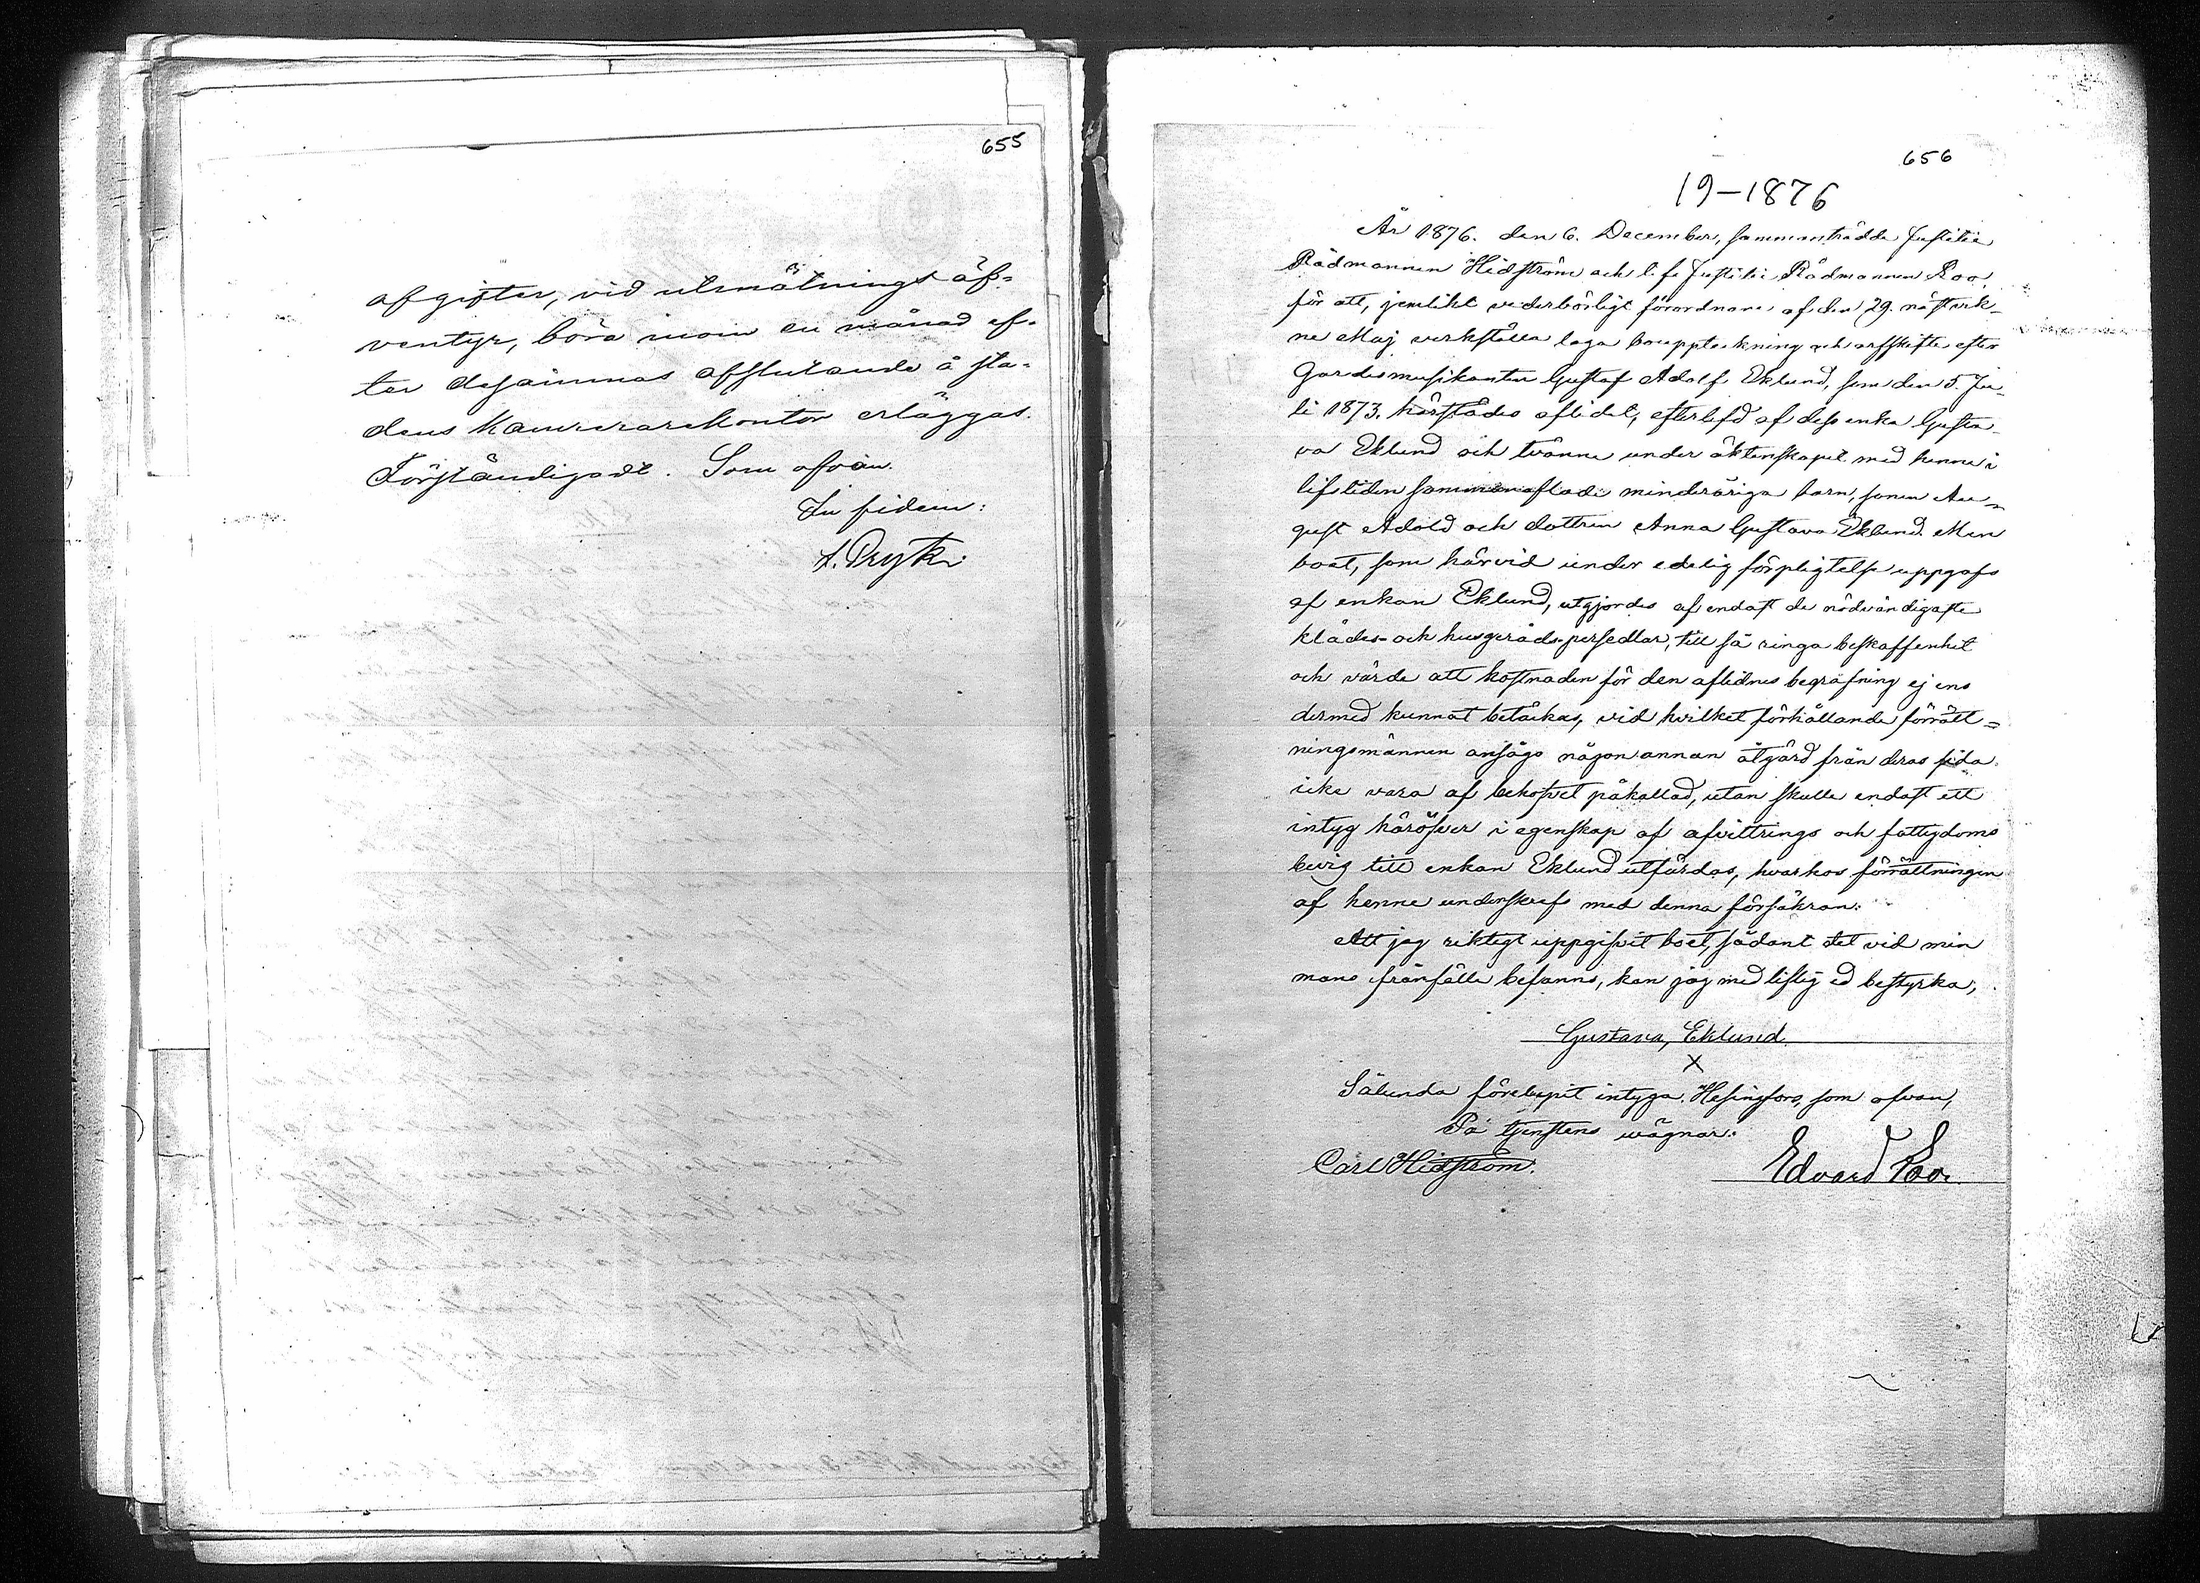 655
afgifter, vid utmätnings äf-
ventyr, böra inom en månad ef-
ter desammas afslutande å sta-
dens Kamrerarekontor erläggas.
Förständigadt. Som ofvan.
In fidem:
A. Prytz.
656
19-1876
År 1876. den 6. December, sammanträdde Justitie
Rådmannen Hidström och t. f. Justitie Rådmannen Roo,
för att, jemlikt vederbörligt förordnande af den 29. nästvik-
ne Maj verkställa laga bouppteckning och arfskifte efter
Gardesmusikanten Gustaf Adolf Eklund, som den 5. Ju-
li 1873. härstädes aflidit, efterlefd af dess enka Gusta-
va Eklund och tvänne under äktenskapet med henne i
lifstiden sammanaflade minderåriga barn, sonen Au-
gust Adold och dottren Anna Gustava Eklund. Men
boet, som härvid under edelig förpligtelse uppgafs
af enkan Eklund, utgjordes af endast de nödvändigaste
klädes- och husgeråds-persedlar, till så ringa beskaffenhet
och värde att kostnaden för den aflidnes begrafning ej ens
dermed kunnat betäckas, vid hvilket förhållande förrätt-
ningsmännen ansågo någon annan åtgärd från deras sida
icke vara af behofvet påkallad, utan skulle endast ett
intyg häröfver i egenskap af afvittrings och fattigdoms
bevis till enkan Eklund utfärdas, hvarhos förrättningen
af henne underskrefs med denna försäkran:
Att jag riktigt uppgifvit boet, sådant det vid min
mans frånfälle befanns, kan jag med liflig ed bestyrka;
Gustava, Eklund.
X
Sålunda förelupit intyga. Helsingfors, som ofvan,
På tjenstens vägnar:
Carl Hidström. Edvard Roo.